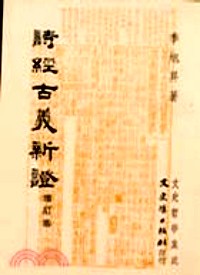 季旭昇著
文史哲學集成
文史哲出版社印行
詩經古義新證
增訂